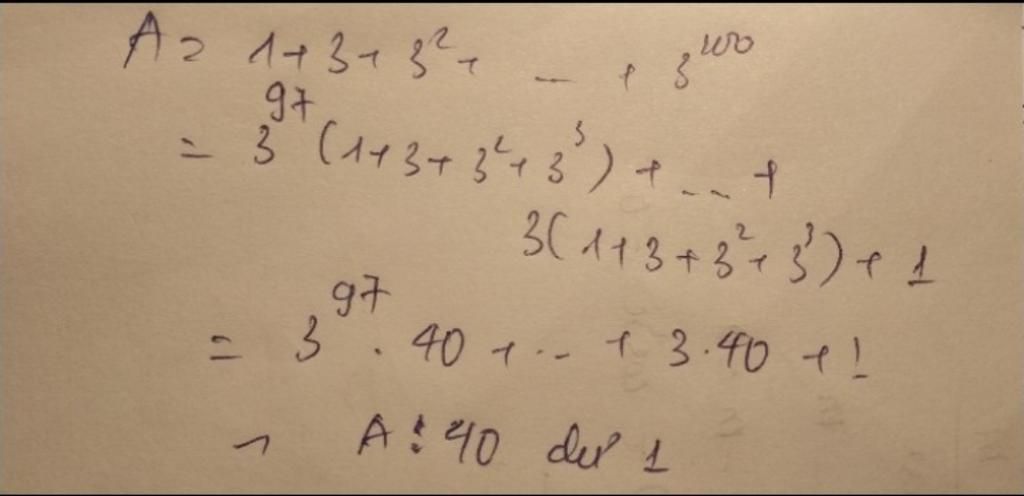 A = 1+3+3²+ ... + 3¹⁰⁰
= 3⁹⁷(1+3+3²+3³) + ... +
3(1+3+3²+3³) + 1
= 3⁹⁷ . 40 + ... + 3.40 + 1
→ A ⋮ 40 dư 1